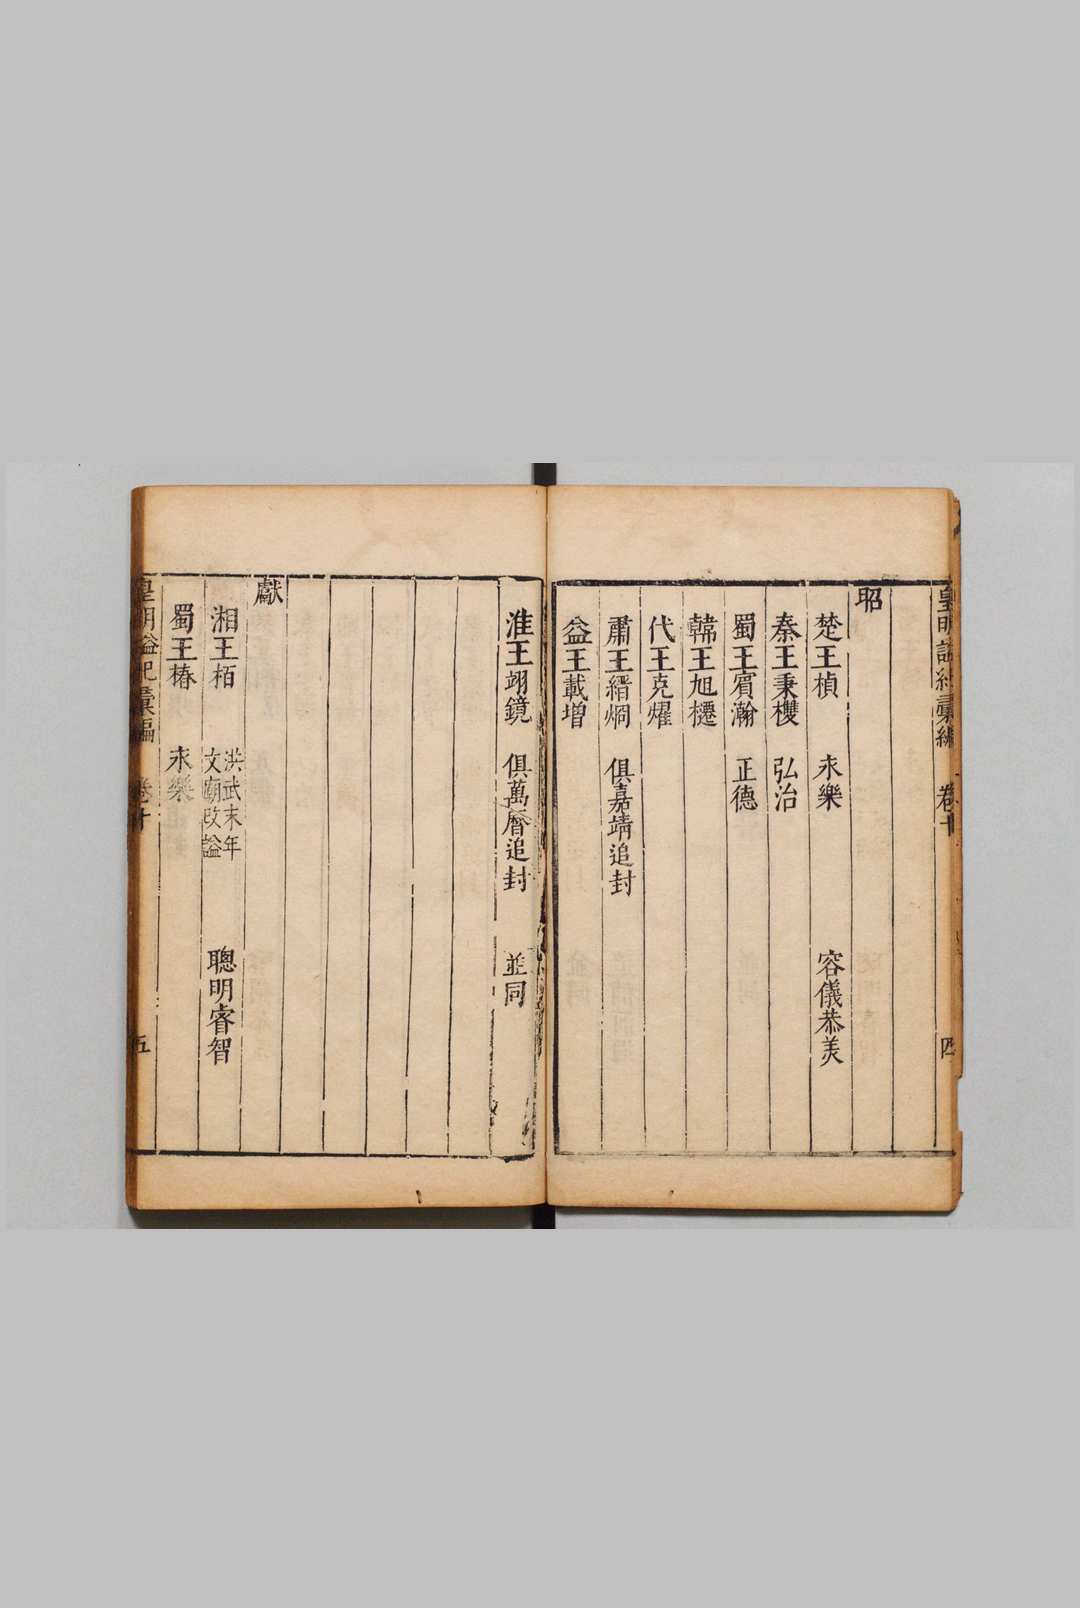 皇明謚紀彙編 卷十 四
昭
楚王楨 永樂 容儀恭美
秦王秉欆 弘治
蜀王賓瀚 正德
韓王旭櫏
代王充燿
肅王縉烱 俱嘉靖追封
益王載增
淮王翊鏡 俱萬曆追封 並同
獻
湘王栢 洪武末年 文廟改謚 聰明睿智
蜀王椿 永樂
皇明謚紀彙編 卷十 五